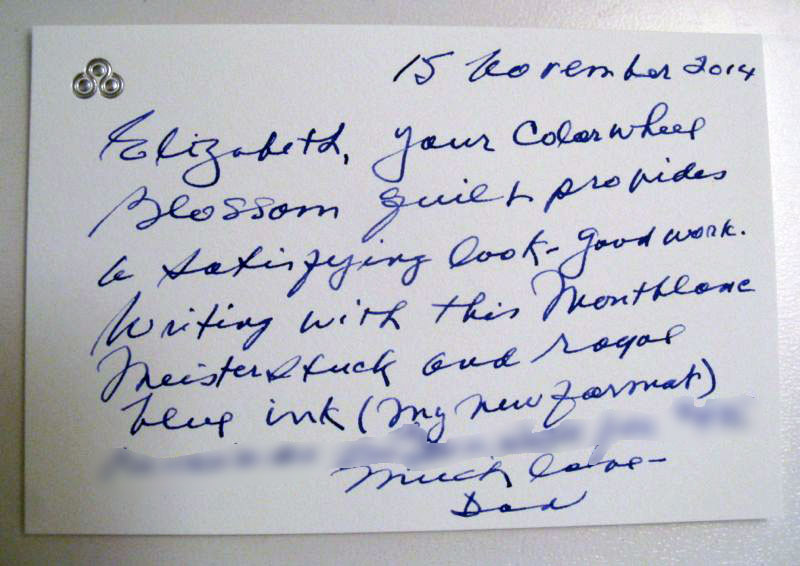 15 November 2014
Elizabeth, your Colorwheel
Blossom quilt provides
a satisfying look - Good work.
Writing with this Montblanc
Meisterstuck and royal
blue ink (my new format)
Much love -
Dad